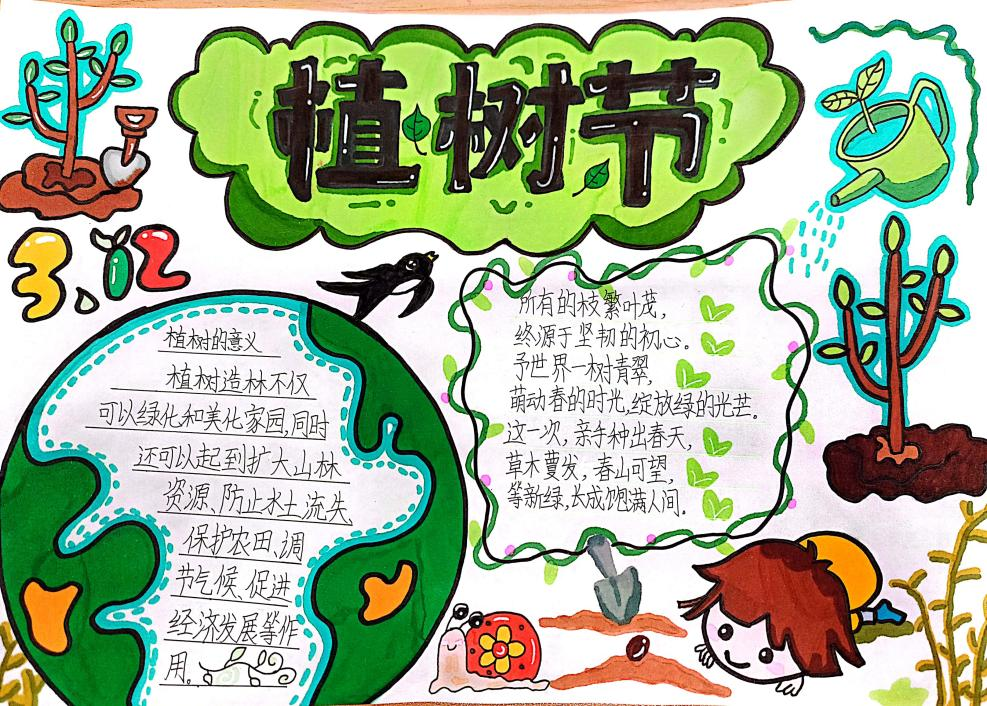 植树节
3.12
植树的意义
植树造林不仅
可以绿化和美化家园,同时
还可以起到扩大山林
资源、防止水土流失、
保护农田、调
节气候、促进
经济发展等作
用。
所有的枝繁叶茂,
终源于坚韧的初心。
予世界一树青翠,
萌动春的时光,绽放绿的光芒。
这一次,亲手种出春天,
草木蔓发,春山可望,
等新绿,长成饱满人间。